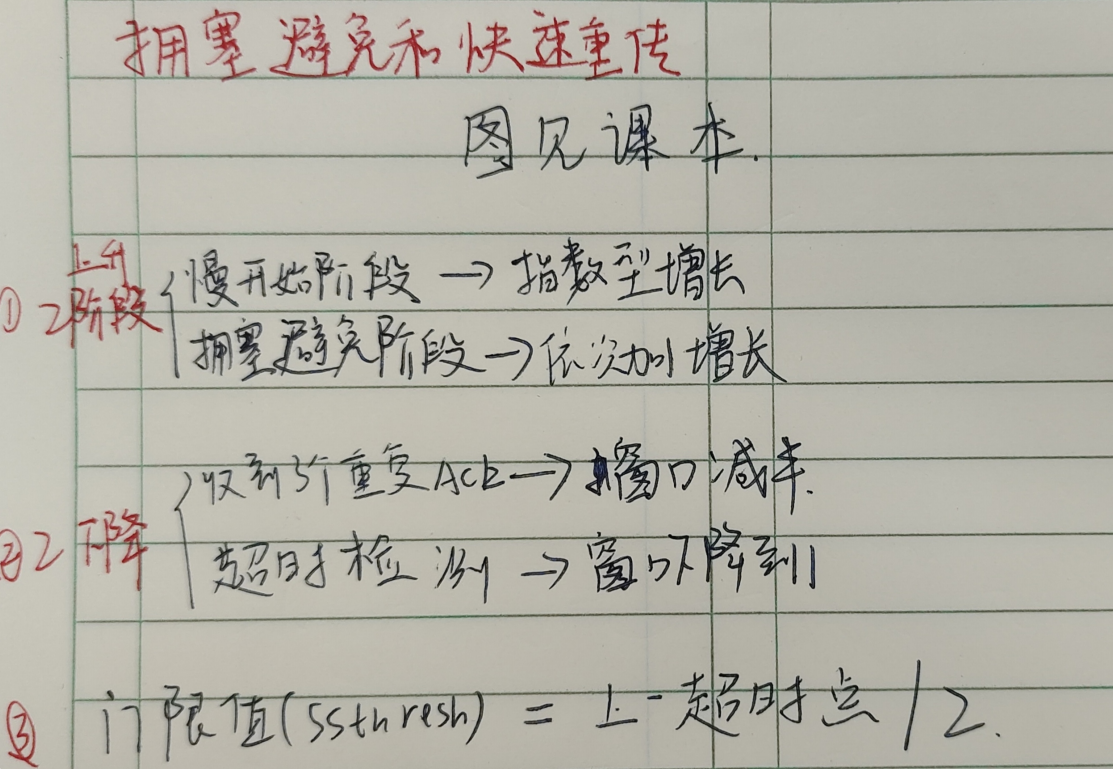 拥塞避免和快速重传
图见课本.
① 2上升阶段 { 慢开始阶段 → 指数型增长
拥塞避免阶段 → 依次加1增长
②2下降 { 收到3个重复ACK → 窗口减半.
超时检测 → 窗口下降到1
③ 门限值(ssthresh) = 上一超时点/2.